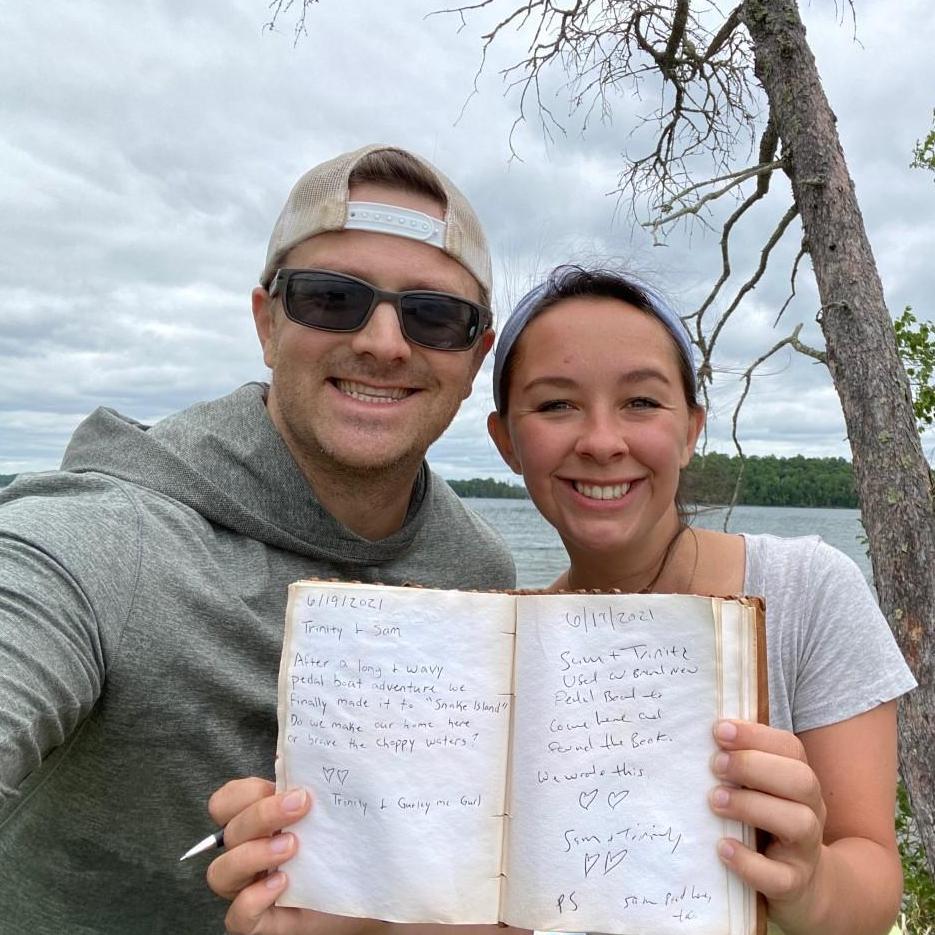 6/19/2021
Trinity + Sam
After a long + wavy
pedal boat adventure we
finally made it to "Snake Island"
Do we make our home here
or brave the choppy waters?
♡♡
Trinity & Gurley mc Gurl
6/19/2021
Sam + Trinity
Used our Brand New
Pedal Boat to
Come here and
Found the Book.
We wrote this.
♡ ♡
Sam + Trinity
♡♡
PS Sam